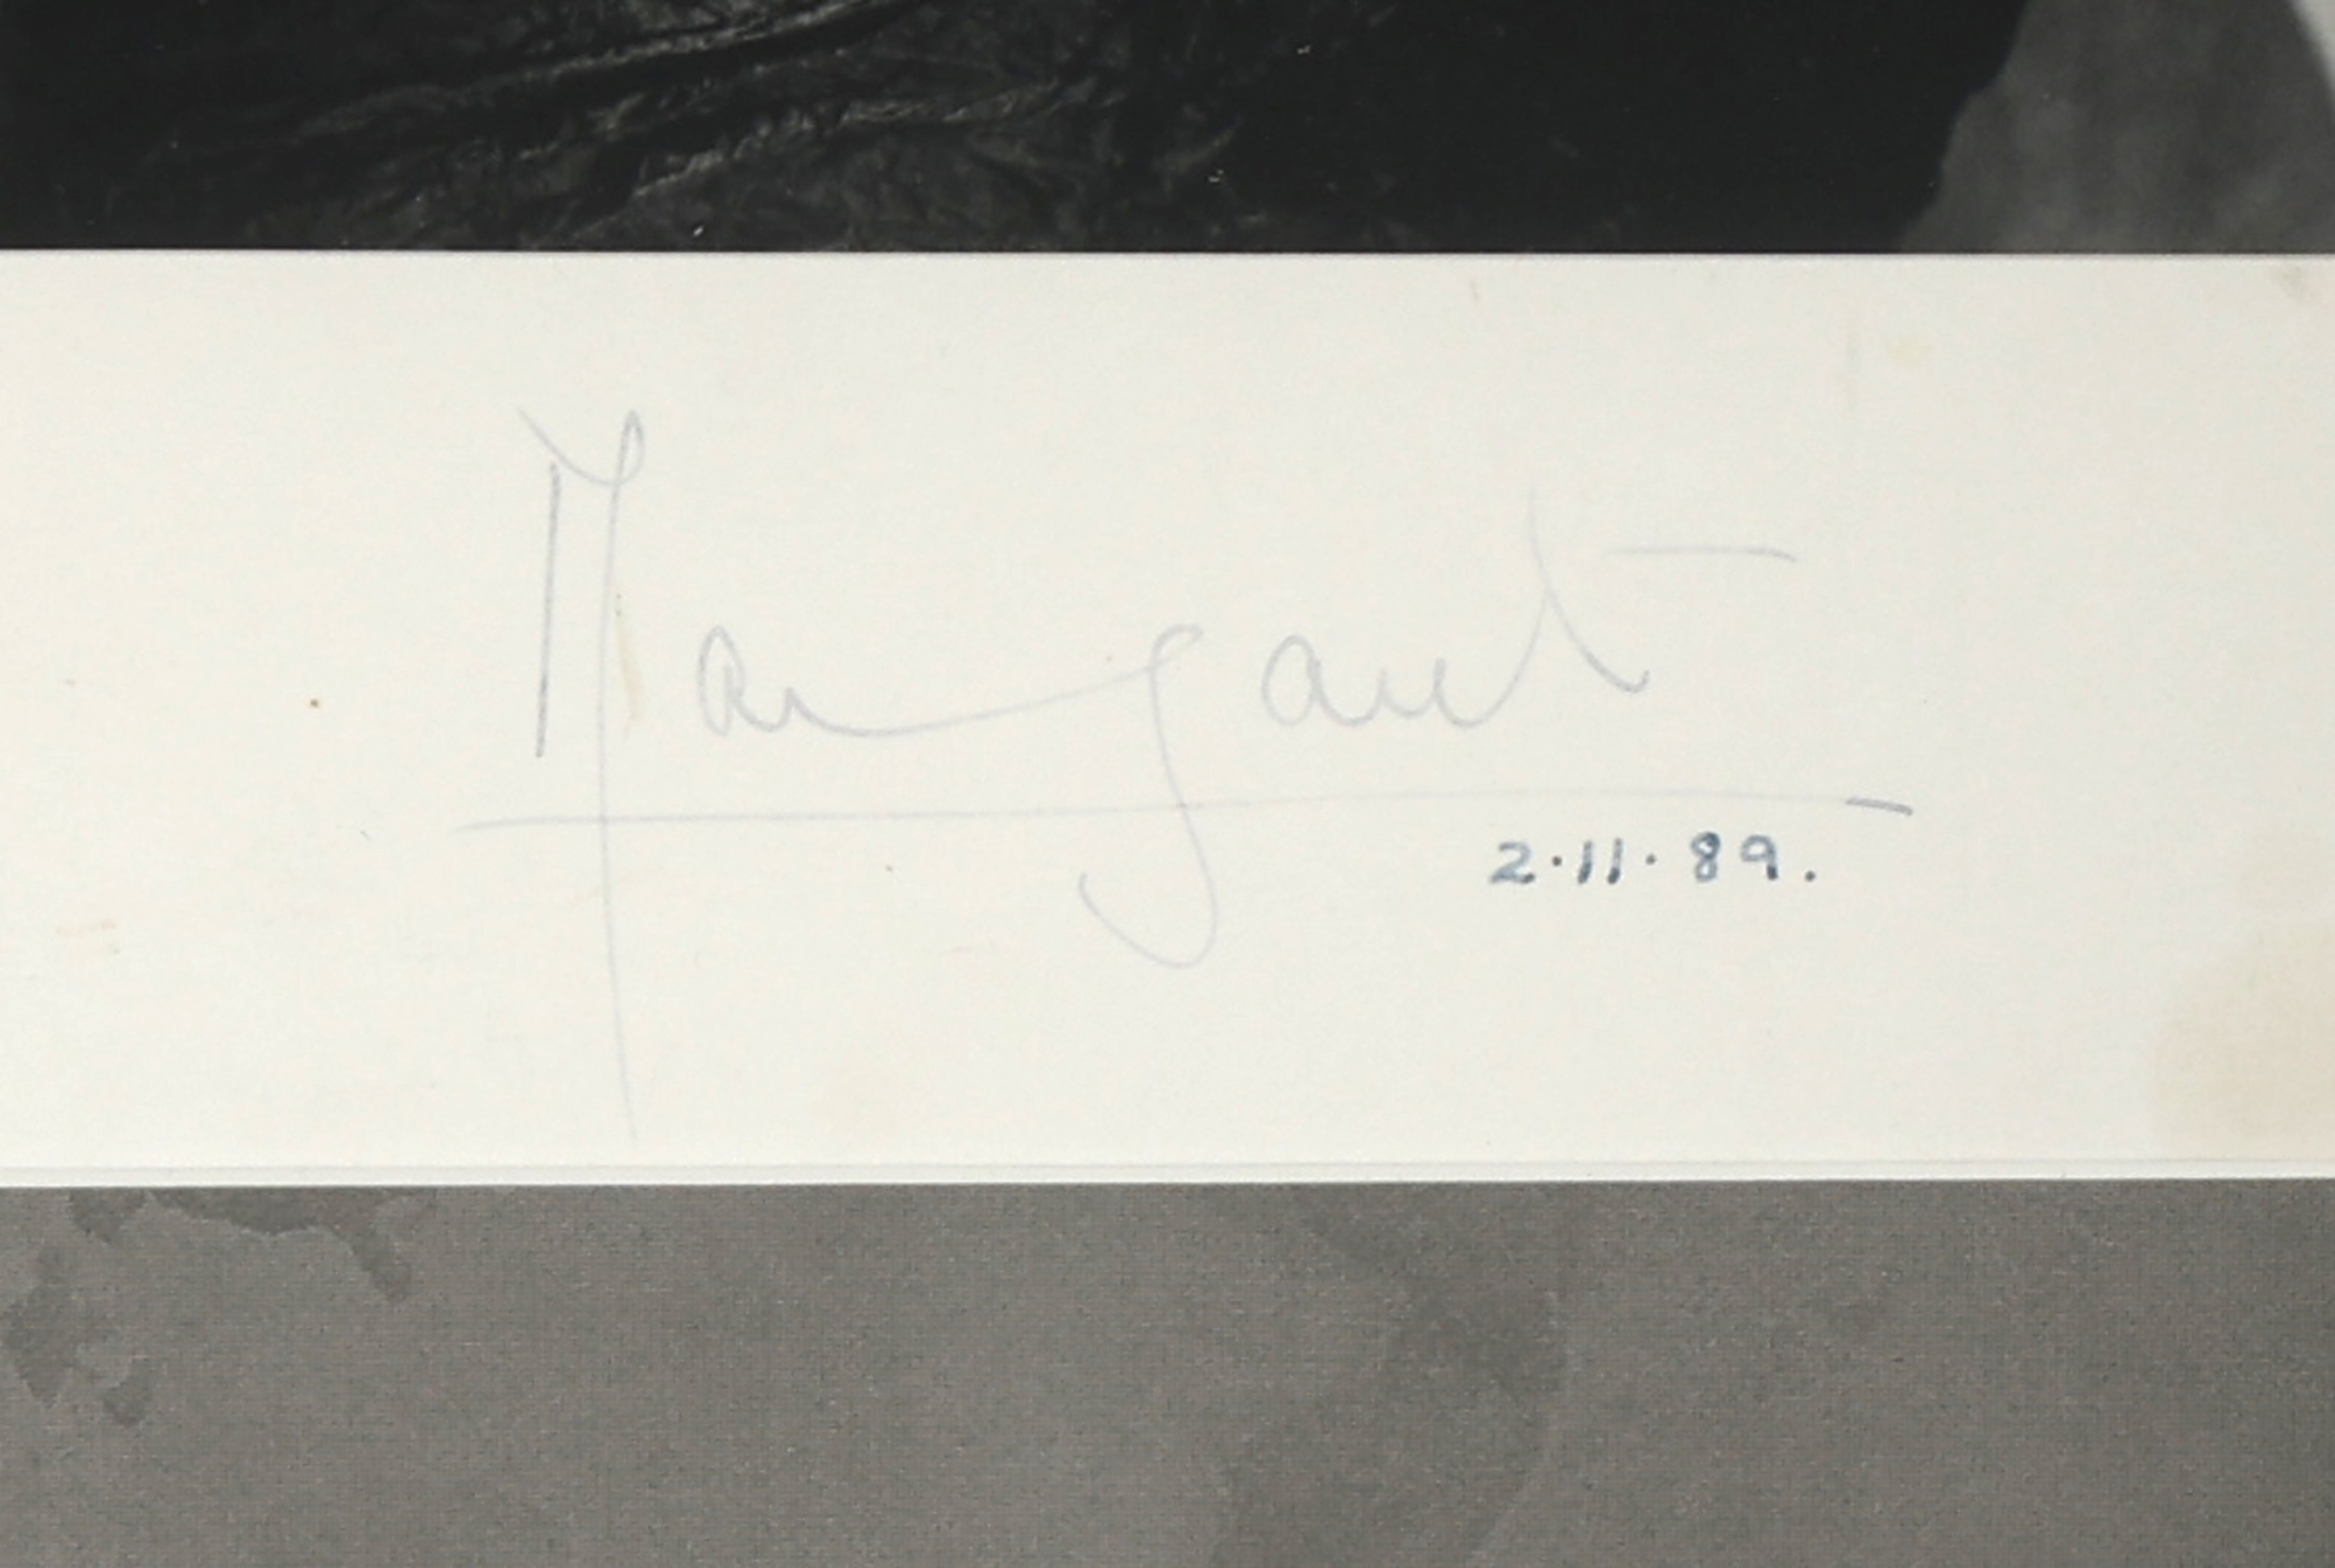 Margaret
2·11·89.